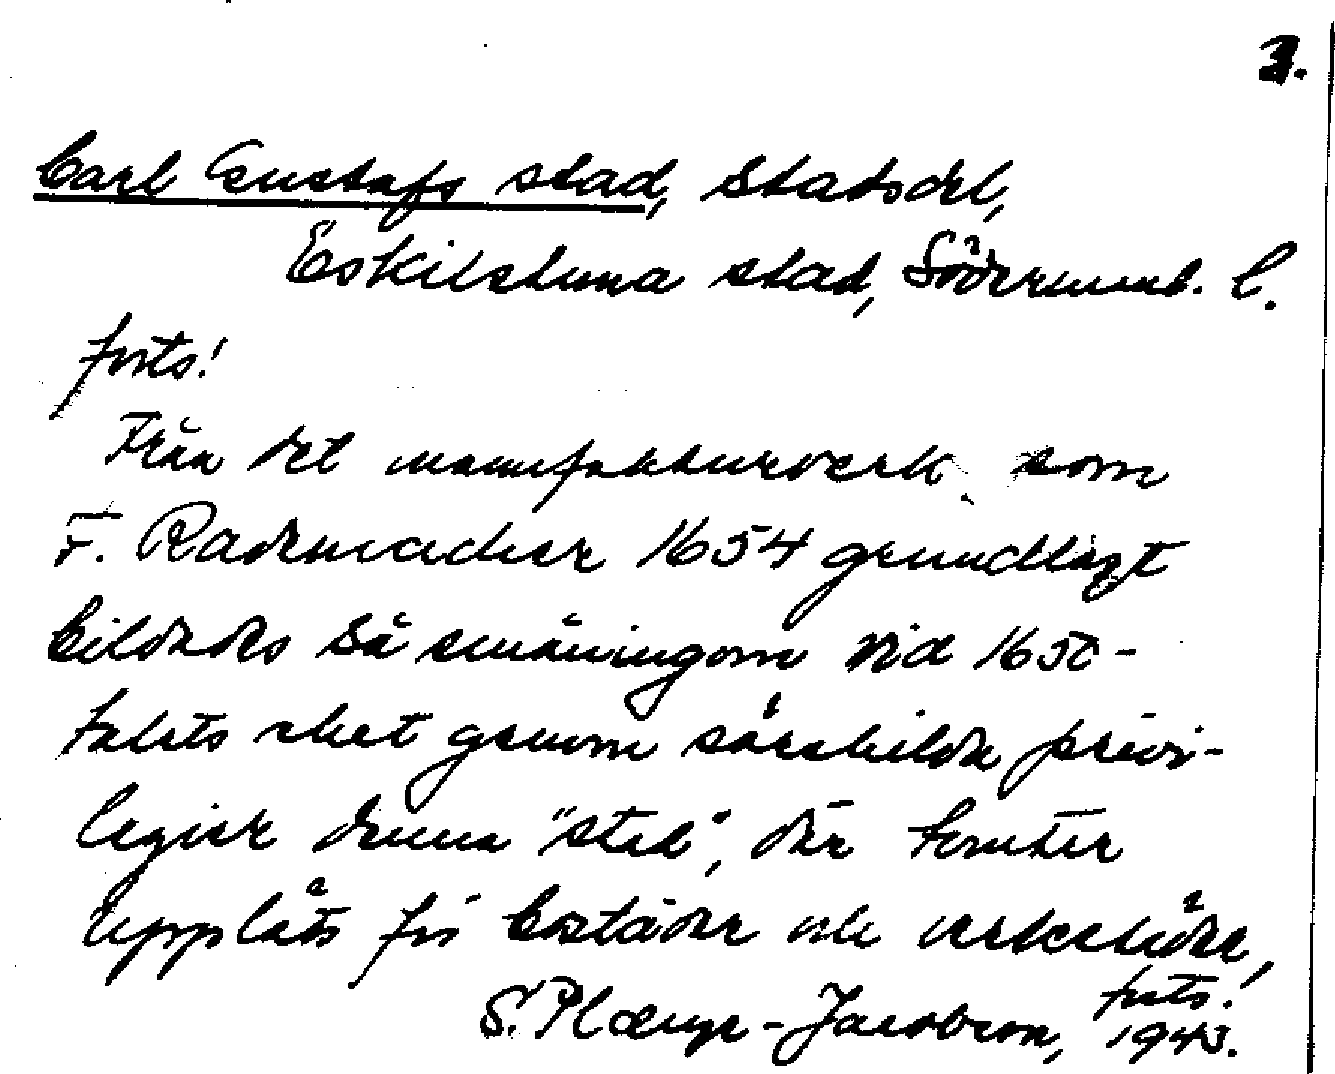 3.
Carl Gustafs stad, Stadsdel,
Eskilstuna stad, Södermanl. l.
forts!
Från det manufakturverk som
F. Rademacher 1654 grundlagt
bildades så småningom vid 1650-
talets slut genom särskilda privi-
legier denna "stad", där tomter
uppläts för bostäder och verkstäder,
forts!
S. Plænge-Jacobson, 1943.